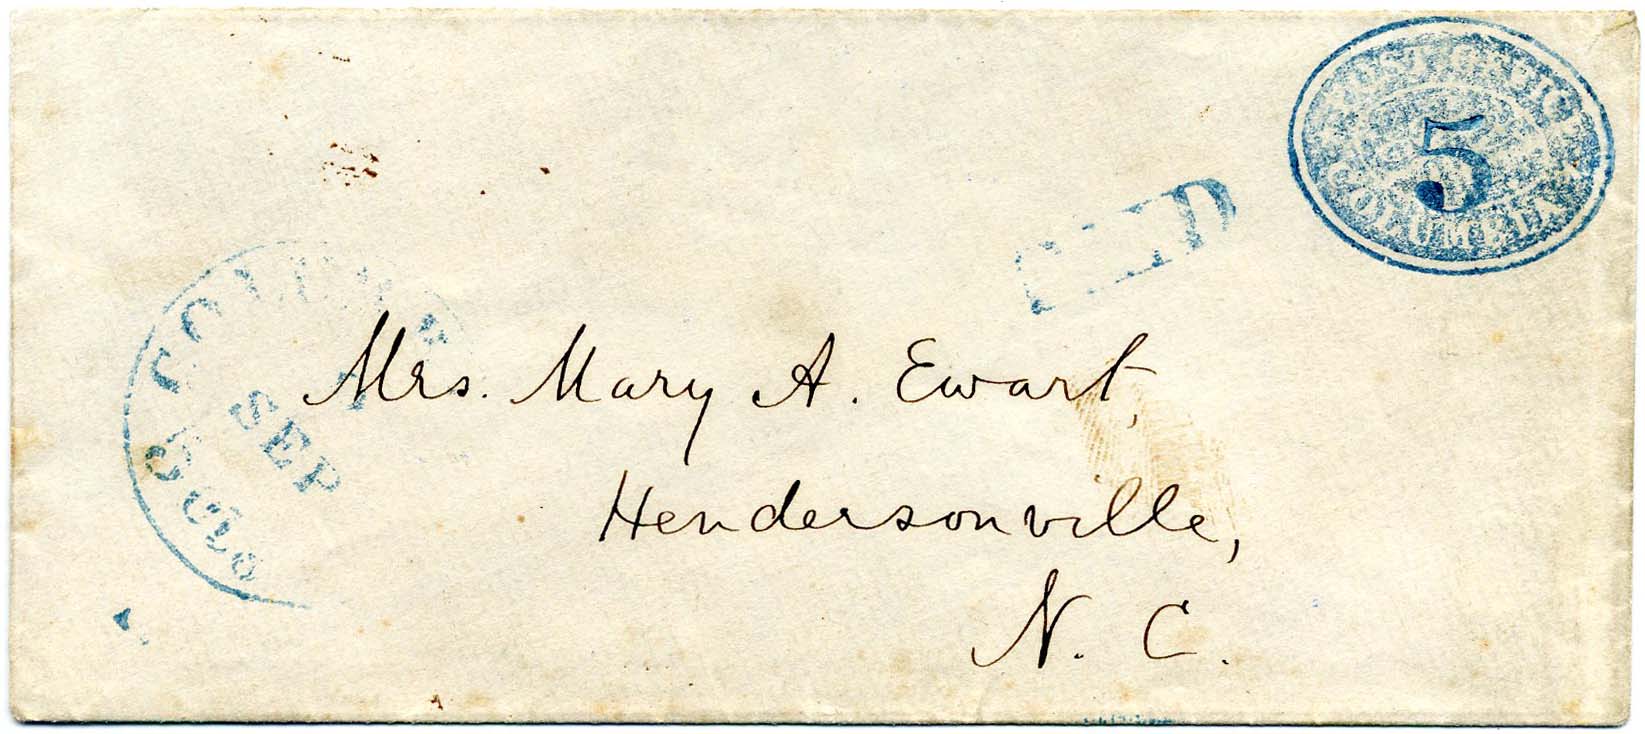 POST OFFICE
5
COLUMBIA
PAID
SEP
Mrs. Mary A. Ewart,
Hendersonville,
N. C.